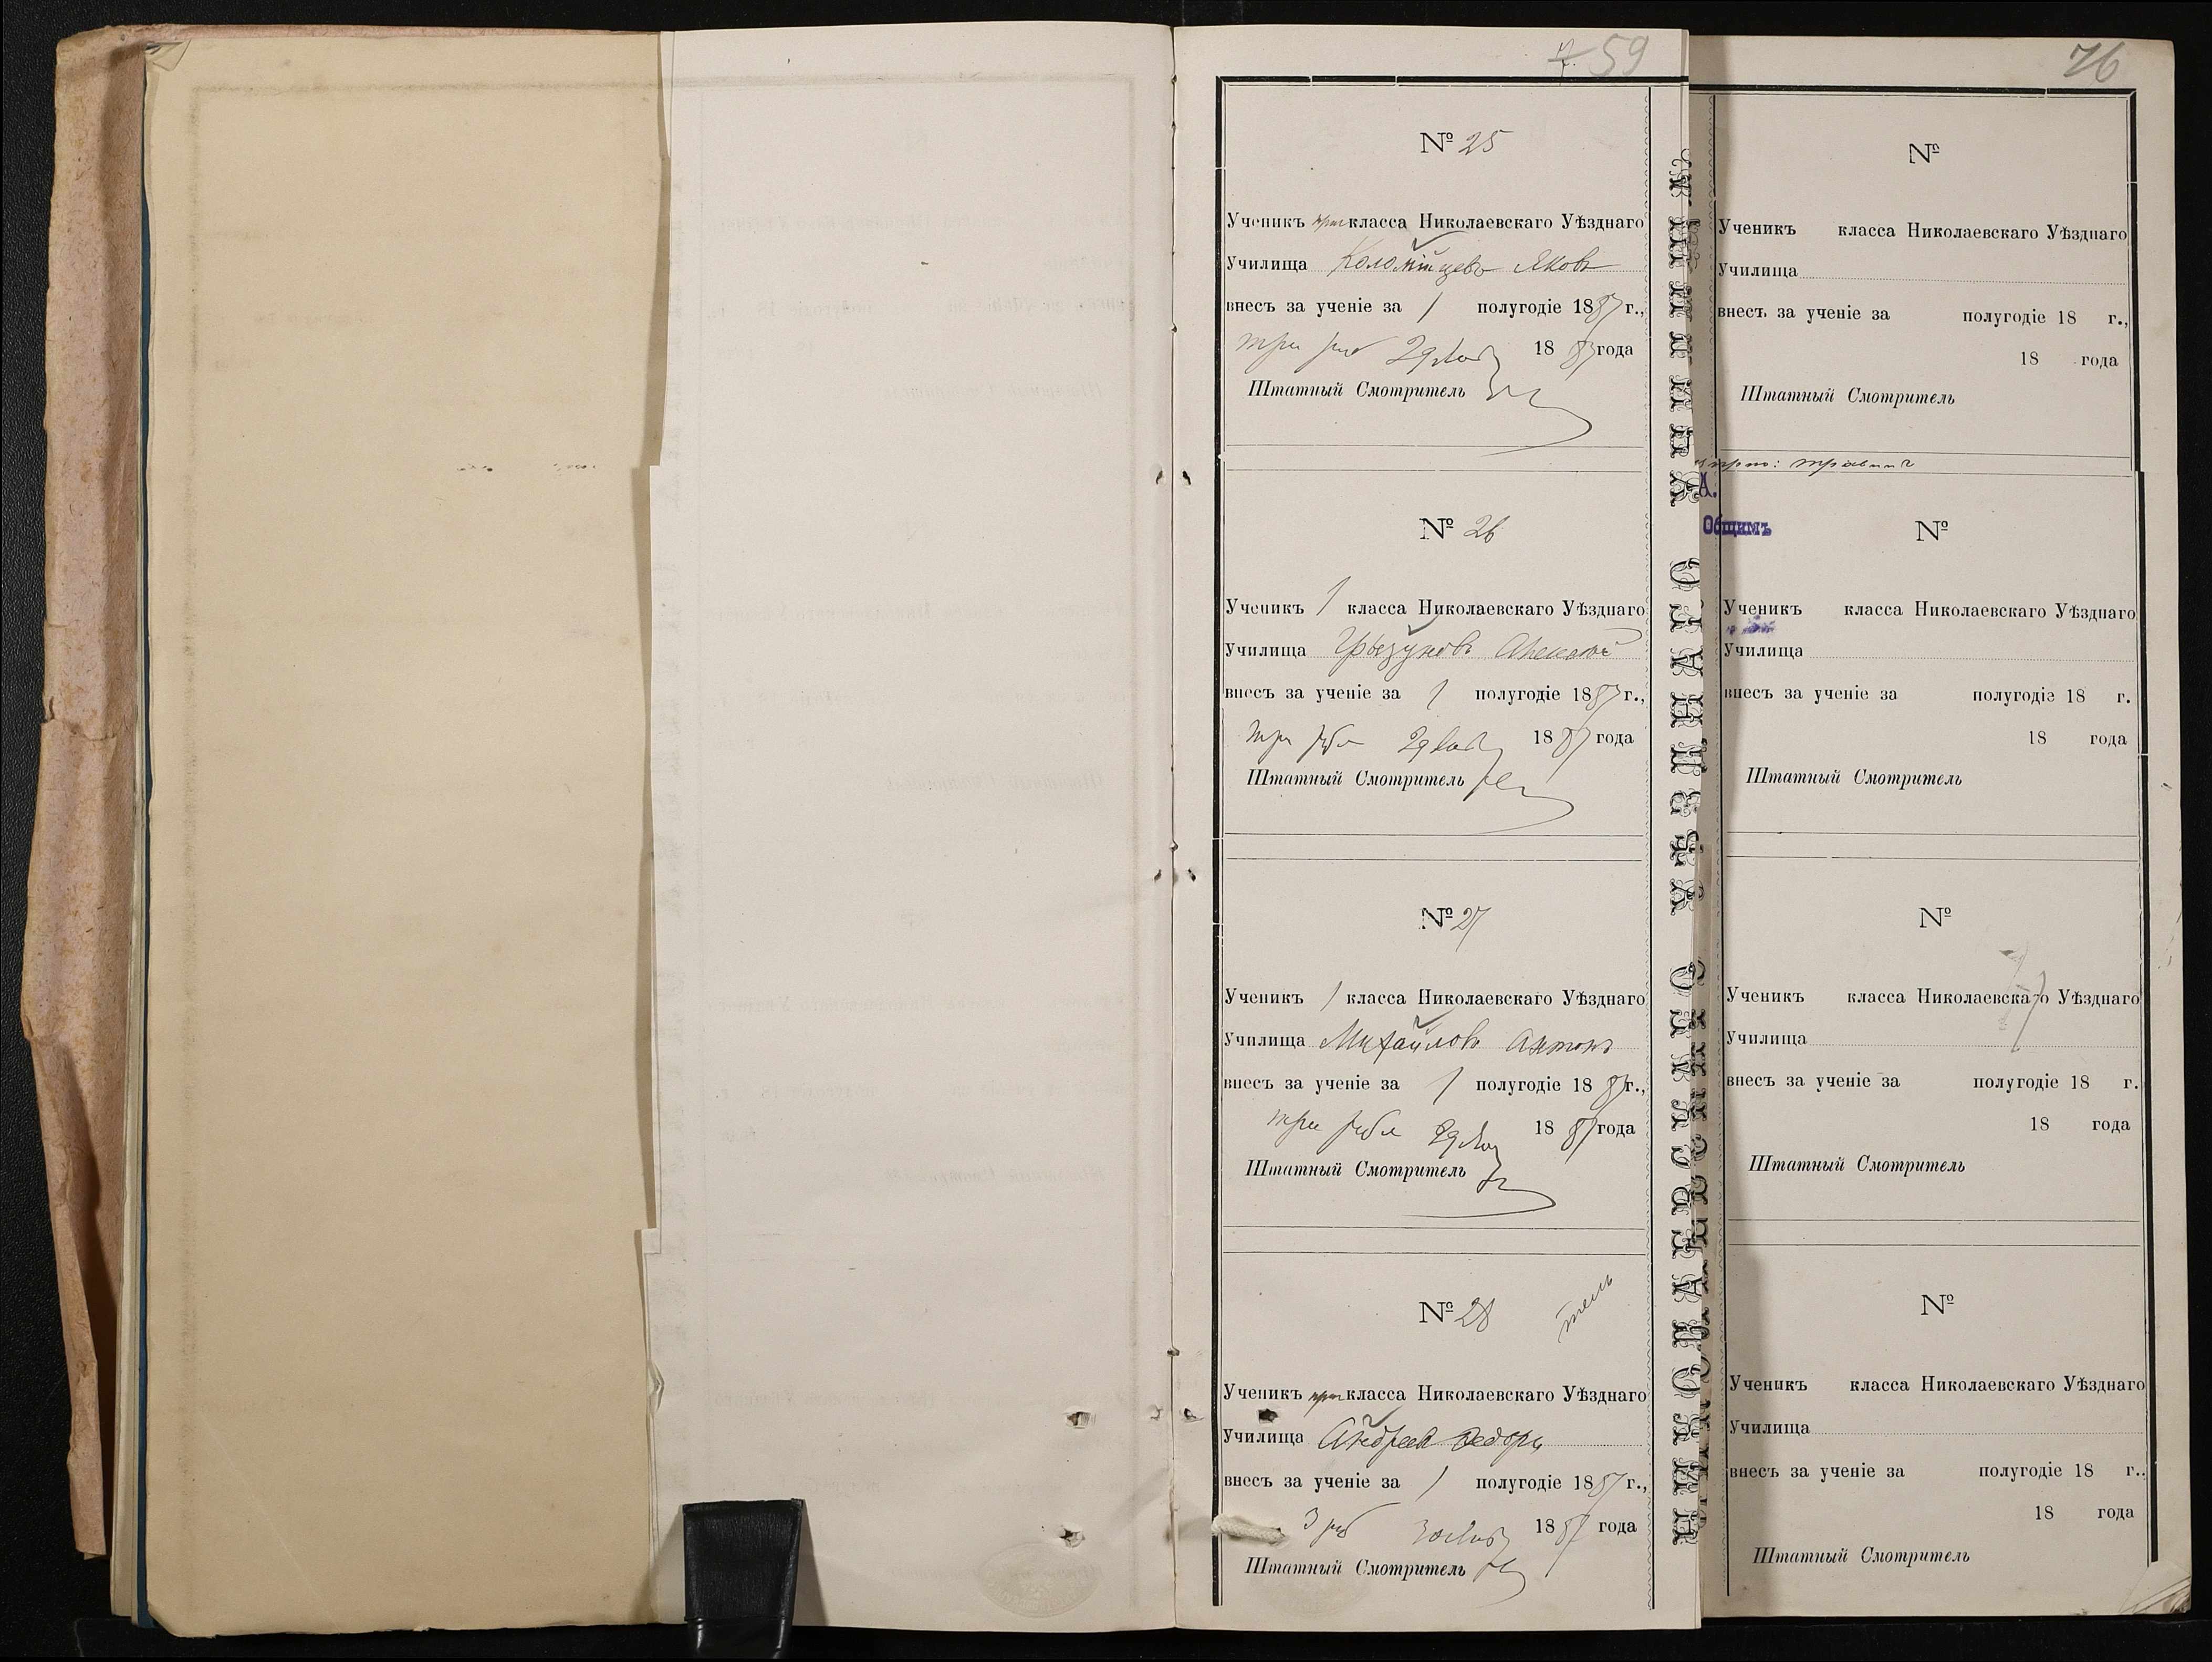 59
№ 25
Ученикъ приг класса Николаевскаго Уѣзднаго
Училища Коломійцевъ Яковъ
внесъ за ученіе за 1 полугодіе 1887 г.,
три руб 29 Янв 1887 года
Штатный Смотритель
№ 26
Ученикъ 1 класса Николаевскаго Уѣзднаго
Училища Алексѣй
внесъ за ученіе за 1 полугодіе 1887 г.,
три рубл 29 Янв 1887 года
Штатный Смотритель
№ 27
Ученикъ 1 класса Николаевскаго Уѣзднаго
Училища Михайловъ Антонъ
внесъ за ученіе за 1 полугодіе 1887 г.,
три рубл 29 Янв 1887 года
Штатный Смотритель
№ 28
Ученикъ приг класса Николаевскаго Уѣзднаго
Училища Андреев Ѳедоръ
внесъ за ученіе за 1 полугодіе 1887 г.,
3 руб 30 Янв 1887 года
Штатный Смотритель
НИКОЛАЕВСКАГО УѢЗДНАГО УЧИЛИЩА
76
№
Ученикъ класса Николаевскаго Уѣзднаго
Училища
внесъ за ученіе за полугодіе 18 г.,
18 года
Штатный Смотритель
А.
Общимъ
№
Ученикъ класса Николаевскаго Уѣзднаго
Училища
внесъ за ученіе за полугодіе 18 г.
18 года
Штатный Смотритель
№
Ученикъ класса Николаевскаго Уѣзднаго
Училища
внесъ за ученіе за полугодіе 18 г.
18 года
Штатный Смотритель
№
Ученикъ класса Николаевскаго Уѣзднаго
Училища
внесъ за ученіе за полугодіе 18 г.
18 года
Штатный Смотритель